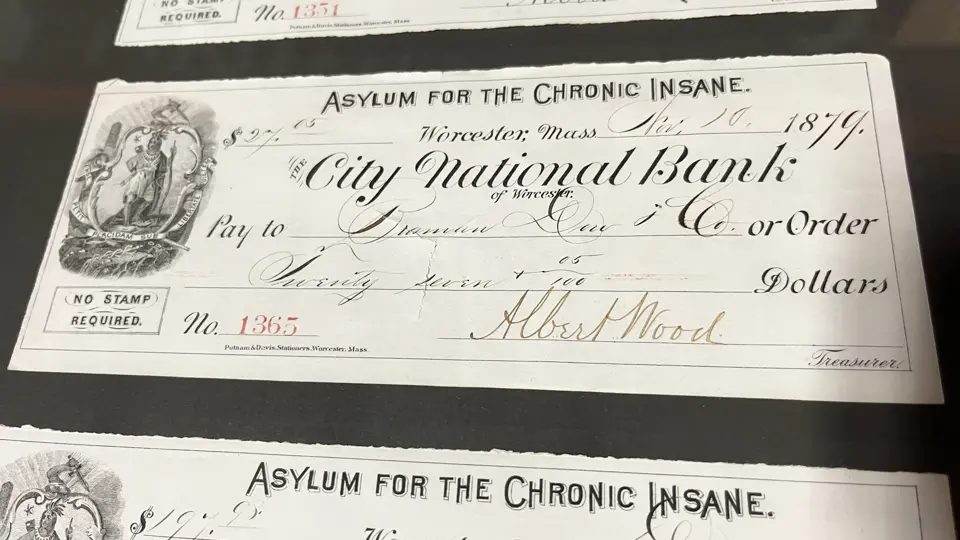 NO STAMP
REQUIRED.
No. 1351
Putnam & Davis, Stationers, Worcester, Mass
ASYLUM FOR THE CHRONIC INSANE.
$27.05
Worcester, Mass Nov, 10. 1879.
THE City National Bank
of Worcester.
Pay to Braman Dow & Co. or Order
Twenty seven + 05/100 Dollars
PLACIDAM SUB
NO STAMP
REQUIRED.
No. 1365
Albert Wood
Treasurer.
Putnam & Davis, Stationers, Worcester, Mass
ASYLUM FOR THE CHRONIC INSANE.